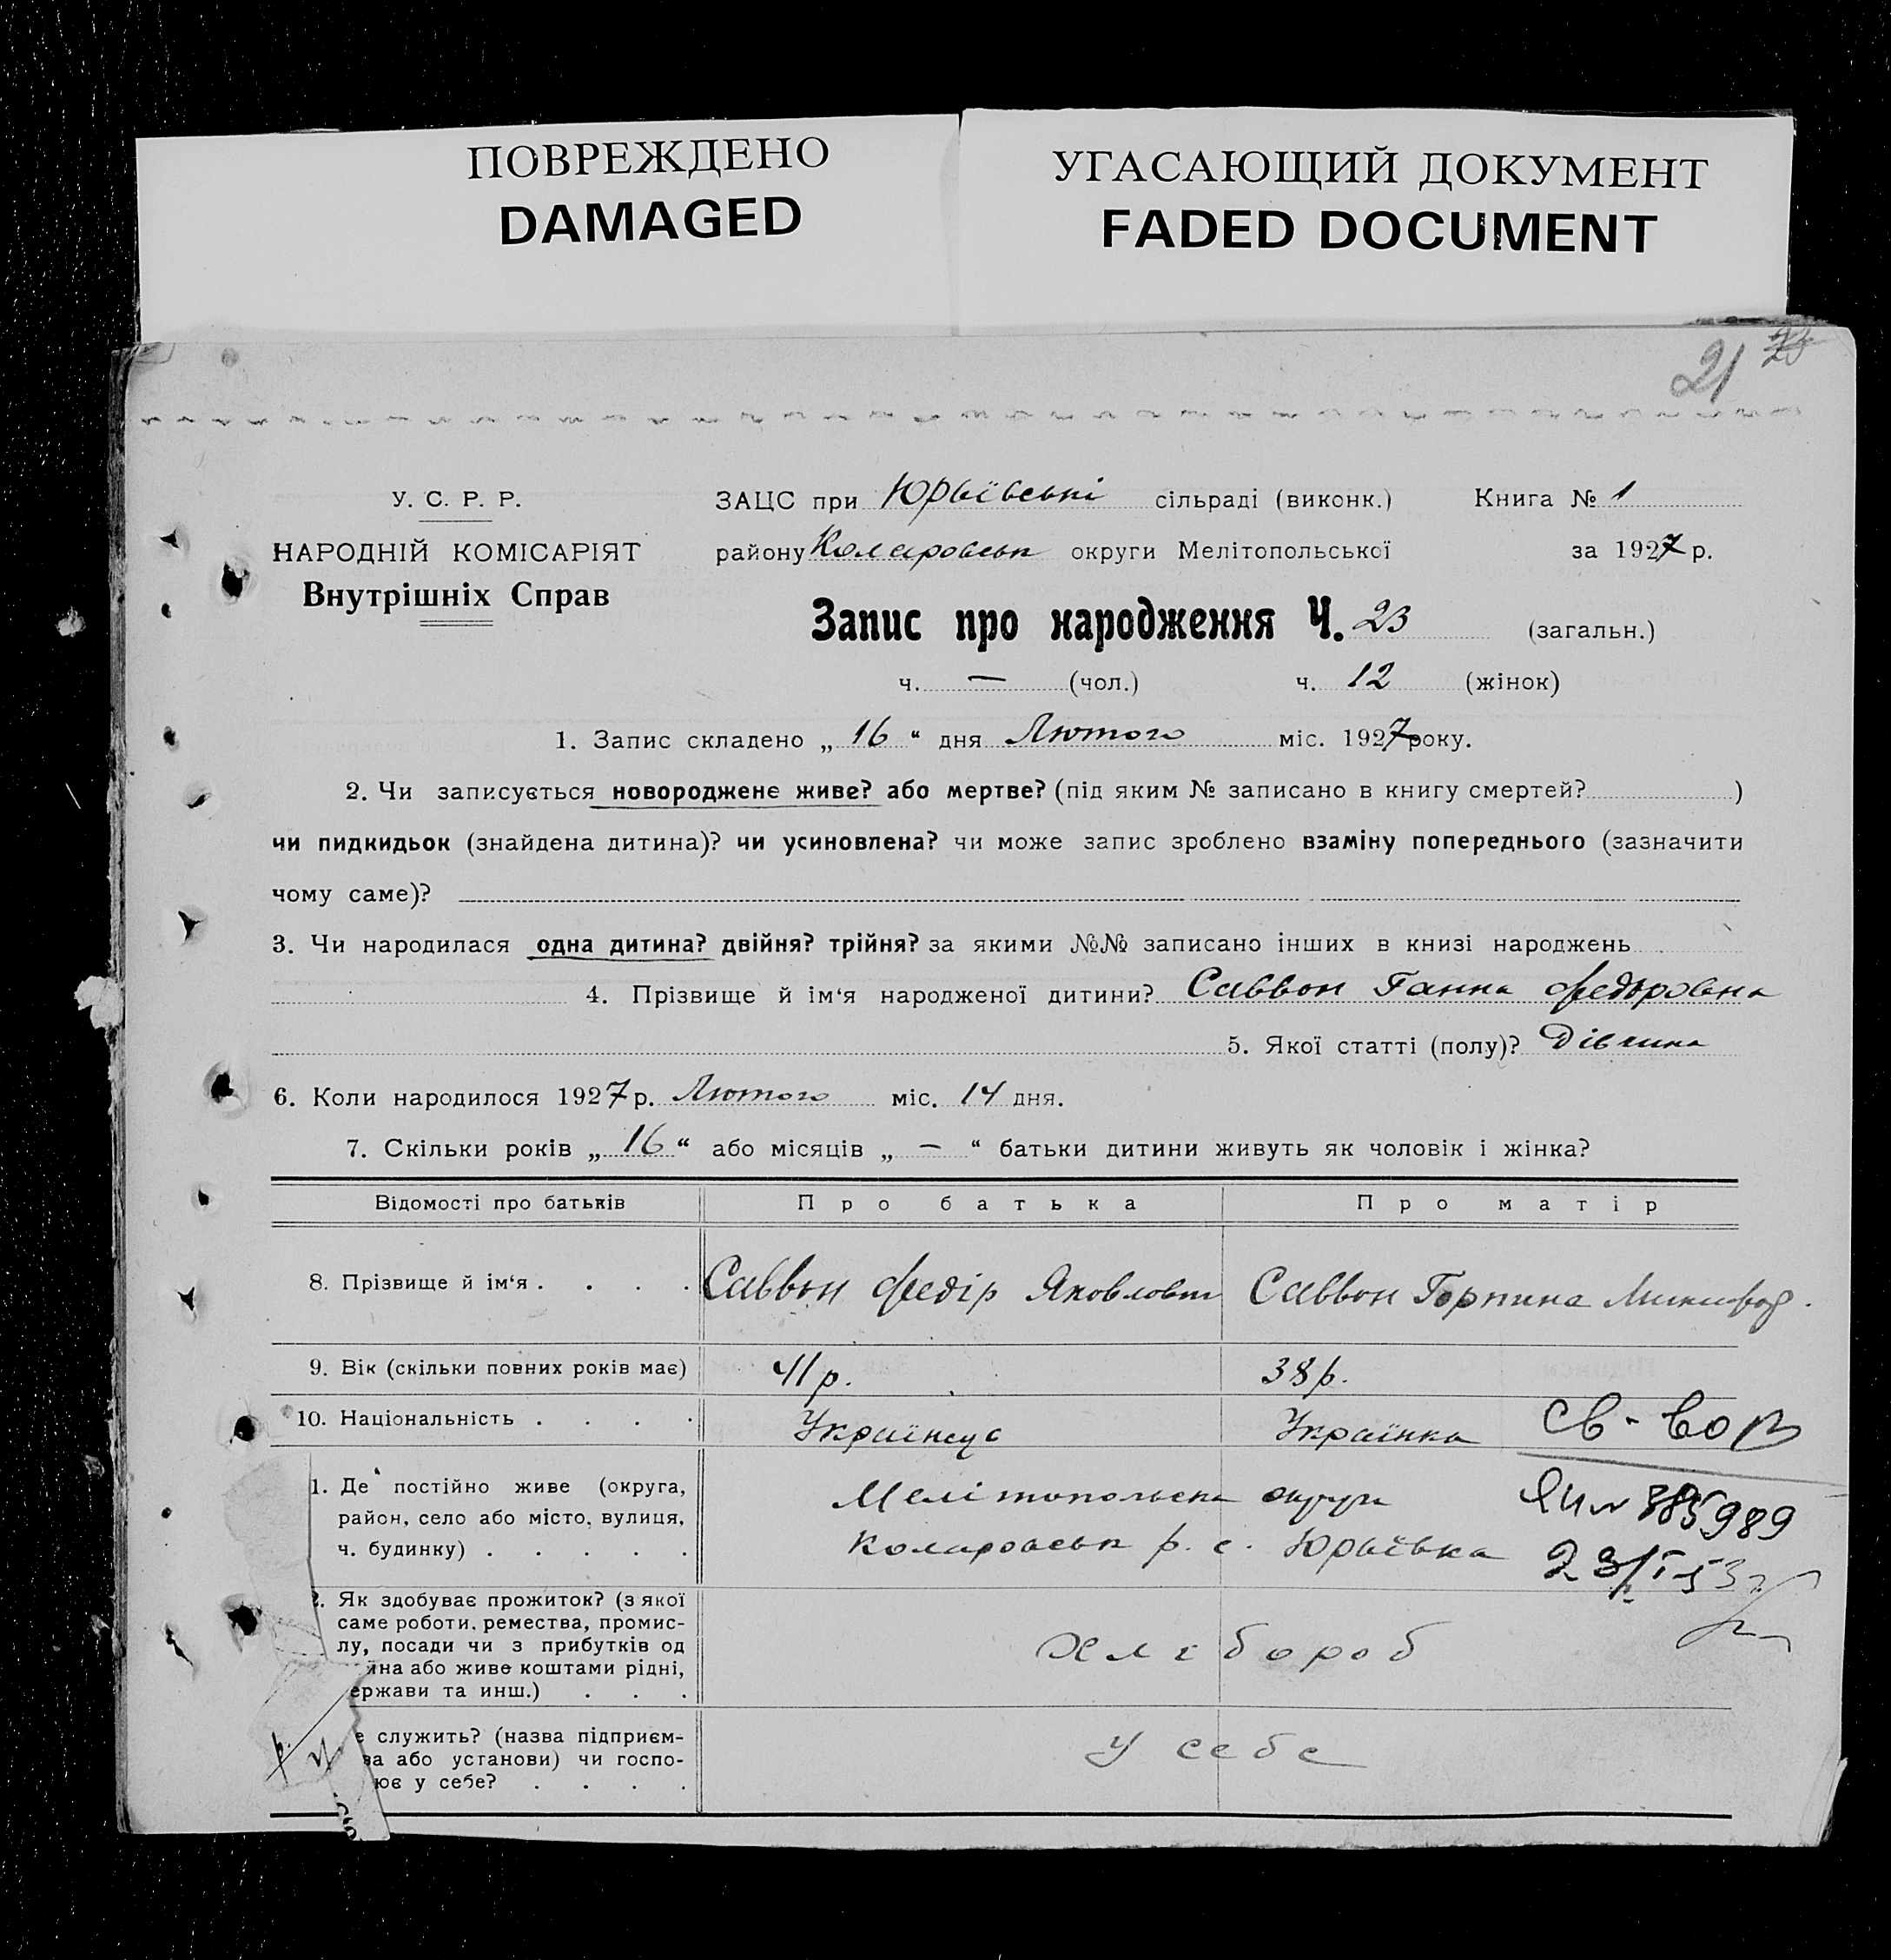 ПОВРЕЖДЕНО
DAMAGED
УГАСАЮЩИЙ ДОКУМЕНТ
FADED DOCUMENT
21
У. С. Р. Р.
НАРОДНІЙ КОМІСАРІЯТ
Внутрішніх Справ
ЗАЦС при Юрьївські сільраді (виконк.) Книга № 1
району Коларовськ округи Мелітопольської за 1927 р.
Запис про народження Ч. 23 (загальн.)
ч. — (чол.) ч. 12 (жінок)
1. Запис складено „ 16 “ дня Лютого міс. 1927 року.
2. Чи записується новороджене живе? або мертве? (під яким № записано в книгу смертей? )
чи пидкидьок (знайдена дитина)? чи усиновлена? чи може запис зроблено взаміну попереднього (зазначити
чому саме)?
3. Чи народилася одна дитина? двійня? трійня? за якими №№ записано інших в книзі народжень
4. Прізвище й ім‘я народженої дитини? Саввон Ганна Федоровна
5. Якої статті (полу)? Дівчина
6. Коли народилося 1927 р. Лютого міс. 14 дня.
7. Скільки років „ 16 “ або місяців „ — “ батьки дитини живуть як чоловік і жінка?
Відомості про батьків Про батька Про матір
8. Прізвище й ім‘я . . . . Саввон Федір Яковлович Саввон Горпина
9. Вік (скільки повних років має) 41 р. 38 р.
10. Національність . . . . Українець Українка
св-во
1. Де постійно живе (округа,
район, село або місто, вулиця,
ч. будинку) . . . . .
Мелітопольська округа
Коларовськ р. с. Юрьївка
385989
23/I-53
2. Як здобуває прожиток? (з якої
саме роботи, ремества, промис-
лу, посади чи з прибутків од
йна або живе коштами рідні,
ержави та инш.) . . .
Хлібороб
е служить? (назва підприєм-
ва або установи) чи госпо-
ює у себе? . . . .
У себе